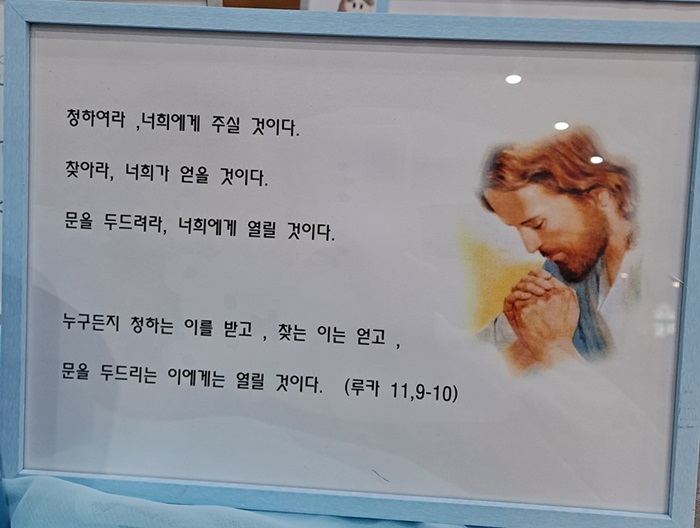 청하여라 ,너희에게 주실 것이다.
찾아라, 너희가 얻을 것이다.
문을 두드려라, 너희에게 열릴 것이다.
누구든지 청하는 이를 받고 , 찾는 이는 얻고 ,
문을 두드리는 이에게는 열릴 것이다. (루카 11,9-10)